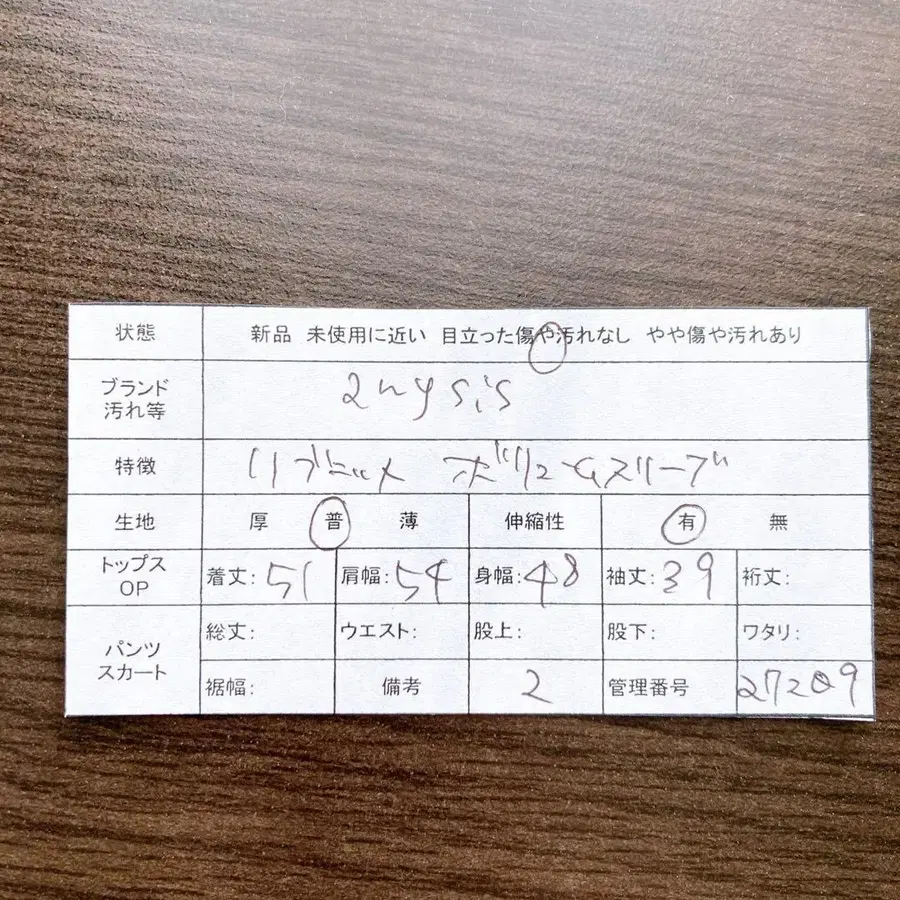 状態 新品 未使用に近い 目立った傷や汚れなし やや傷や汚れあり
ブランド
汚れ等
anysis
特徴 リブニット ボリュームスリーブ
生地 厚 普 薄 伸縮性 有 無
トップス
OP
着丈: 51 肩幅: 54 身幅: 48 袖丈: 39 裄丈:
パンツ
スカート
総丈: ウエスト: 股上: 股下: ワタリ:
裾幅: 備考 2 管理番号 27209